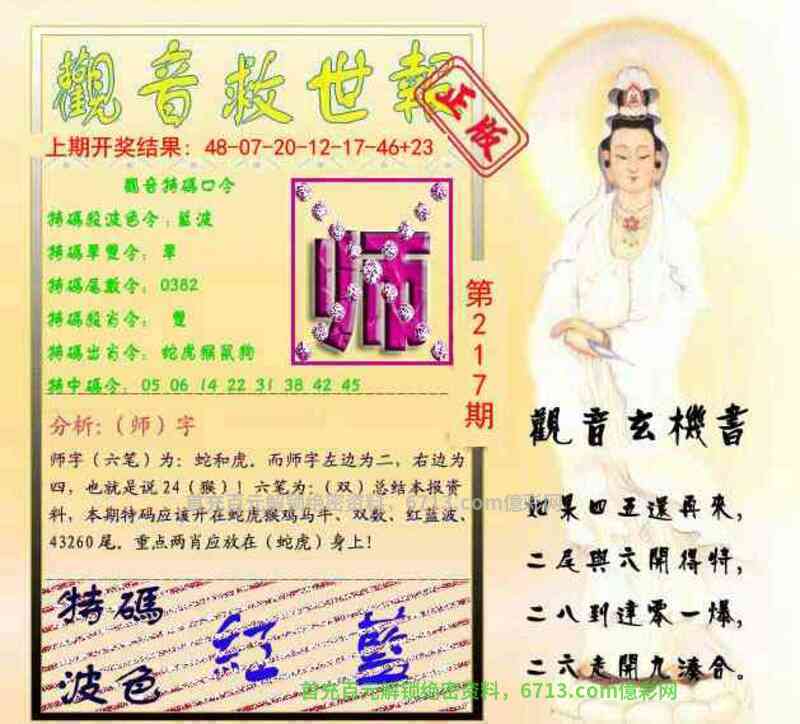 觀音救世報
正版
上期开奖结果：48-07-20-12-17-46+23
觀音特碼口令
特碼段波色令：藍波
特碼單雙令：單
特碼尾數令：0382
特碼段肖令：雙
特碼出肖令：蛇虎猴鼠狗
特中碼令：05 06 14 22 31 38 42 45
师
第217期
分析：（师）字
师字（六笔）为：蛇和虎。而师字左边为二，右边为
四，也就是说24（猴）！六笔为：（双）总结本报资
料，本期特码应该开在蛇虎猴鸡马牛、双数、红蓝波、
43260尾。重点两肖应放在（蛇虎）身上！
首充百元解锁绝密资料，6713.com億彩网
特碼
波色
紅 藍
觀音玄機書
如果四五還再來，
二尾與六開得特，
二八到達零一爆，
二六走開九湊合。
首充百元解锁绝密资料，6713.com億彩网